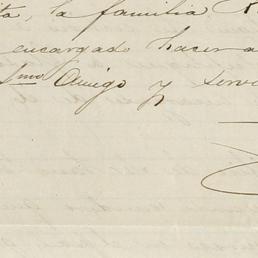 ta, la familia R
encargado hacer a
Smo Amigo y serv